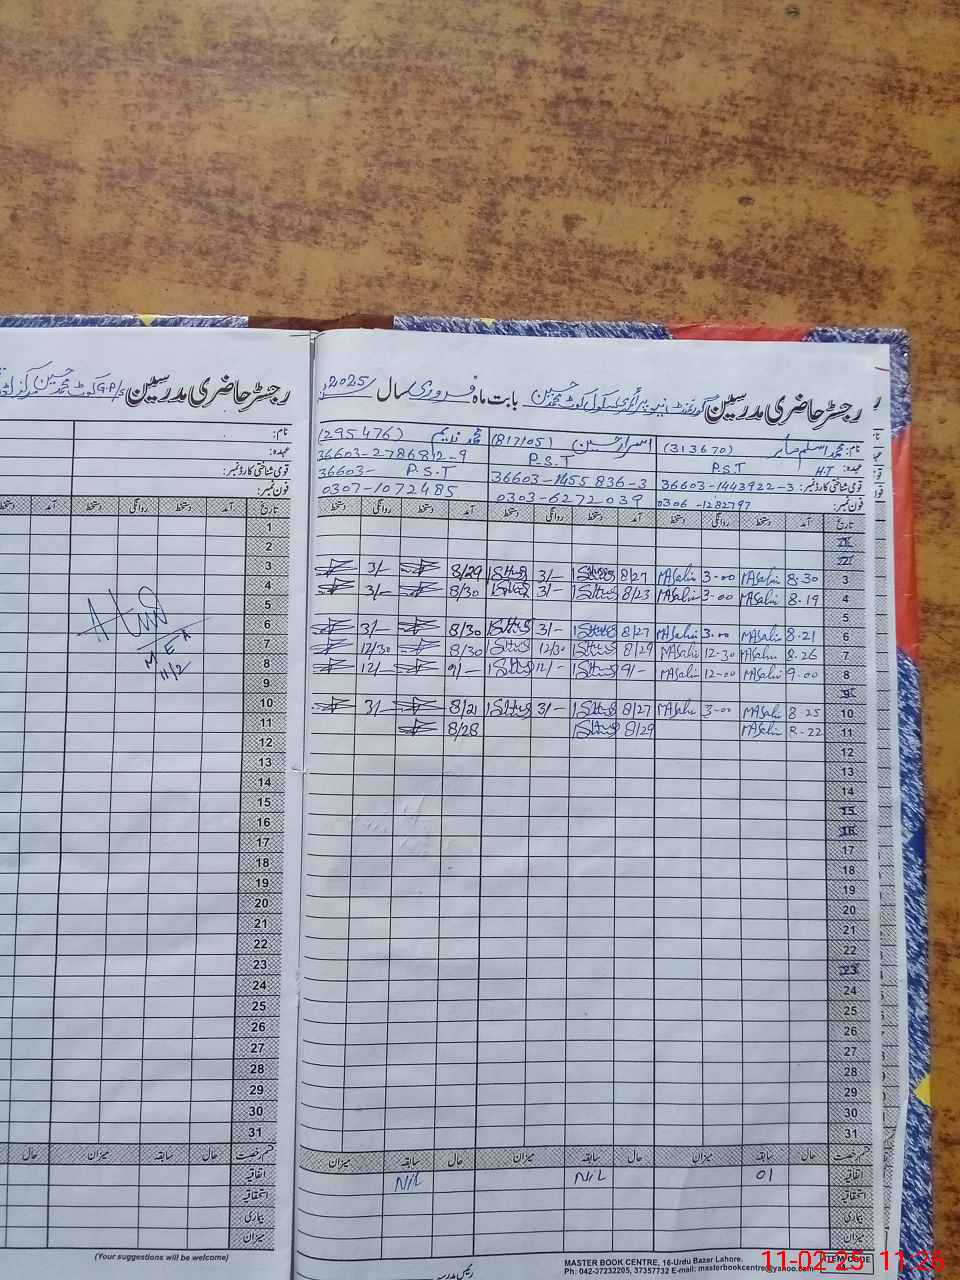 رجسٹر حاضری مدرسین گورنمنٹ نیو پرائمری سکول کوٹ محمد حسین بابت ماہ فروری سال 2025
نام: محمد اسلم صابر (313670) اسرار حسین (817105) محمد ندیم (295476)
عہدہ: H.T P.S.T P.S.T 36603-2786812-9
قومی شناختی کارڈ نمبر: 36603-1443922-3 36603-1455836-3 36603- P.S.T
فون نمبر: 0306-1282797 0303-6272039 0307-1072485
تاریخ آمد دستخط روانگی دستخط آمد دستخط روانگی دستخط آمد دستخط روانگی دستخط
3 8-30 MASabir 3-00 MASabir 8/27 3/- 8/29 3/-
4 8-19 MASabir 3-00 MASabir 8/23 3/- 8/30 3/-
5
6 8-21 MASabir 3-00 MASabir 8/27 3/- 8/30 3/-
7 8-26 MASabir 12-30 MASabir 8/29 12/30 8/30 12/30
8 9-00 MASabir 12-00 MASabir 9/- 12/- 9/- 12/-
9
10 8-25 MASabir 3-00 MASabir 8/27 3/- 8/21 3/-
11 8-22 MASabir 8/29 8/28
12
13
14
15
16
17
18
19
20
21
22
23
24
25
26
27
28
29
30
31
قسم رخصت حال سابقہ میزان حال سابقہ میزان حال سابقہ میزان
اتفاقیہ 01 NIL NIL
استحقاقیہ
بیماری
میزان
MASTER BOOK CENTRE, 16-Urdu Bazar Lahore.
Ph: 042-37232205, 37357732 E-mail: masterbookcentre@yahoo.com
ITEM CODE
رجسٹر حاضری مدرسین G.P/S کوٹ محمد حسین مرکز
نام:
عہدہ:
قومی شناختی کارڈ نمبر:
فون نمبر:
تاریخ آمد دستخط روانگی دستخط آمد
1
2
3
4
5
6
7
8
9
10
11
12
13
14
15
16
17
18
19
20
21
22
23
24
25
26
27
28
29
30
31
M.E.A
11/2
قسم رخصت حال سابقہ میزان حال
اتفاقیہ
استحقاقیہ
بیماری
میزان
(Your suggestions will be welcome)
11-02-25 11:26